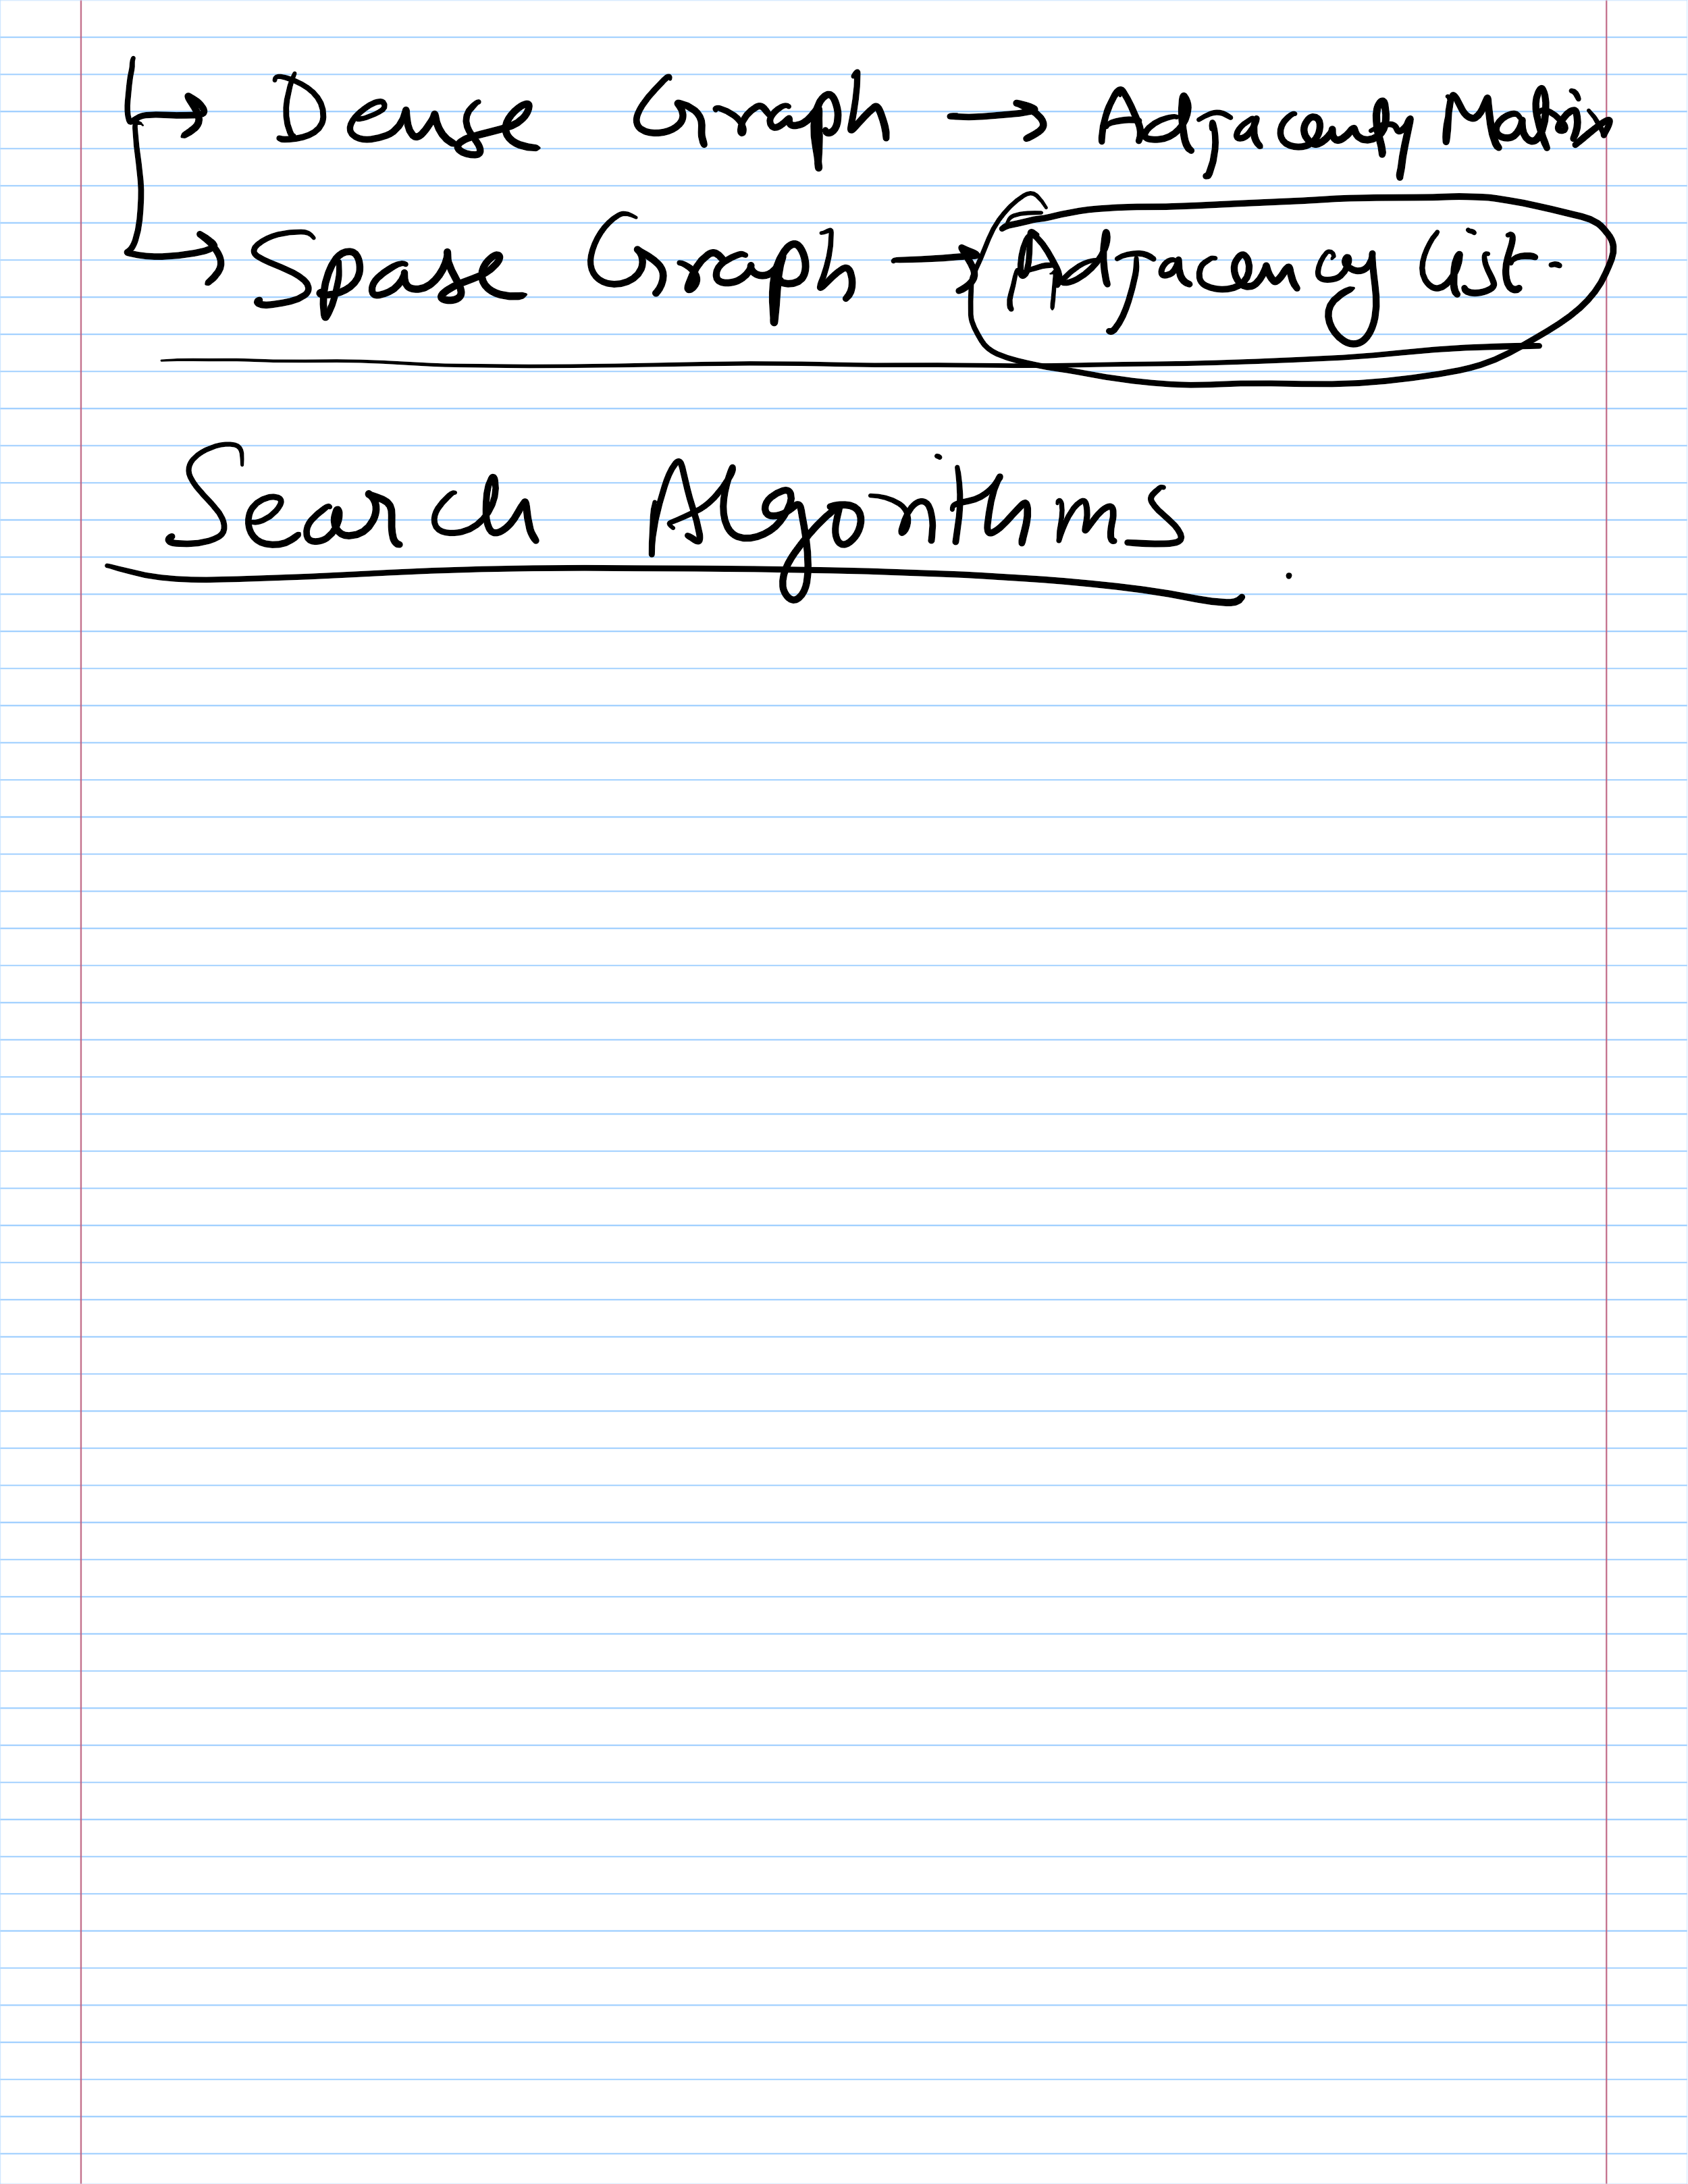 ↳ Dense Graph → Adjacency Matrix
↳ Sparse Graph → Adjacency List.
Search Algorithms.